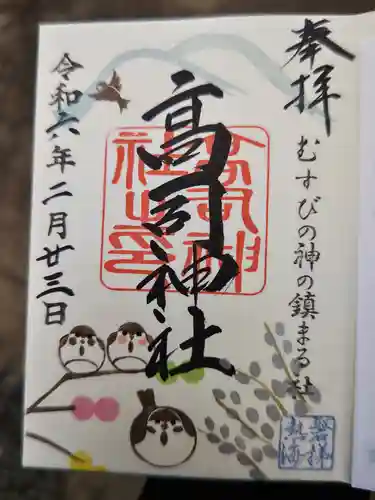 奉拝
むすびの神の鎮まる社
高司神社
高司神社之印
令和六年二月廿三日
磐梯
熱海